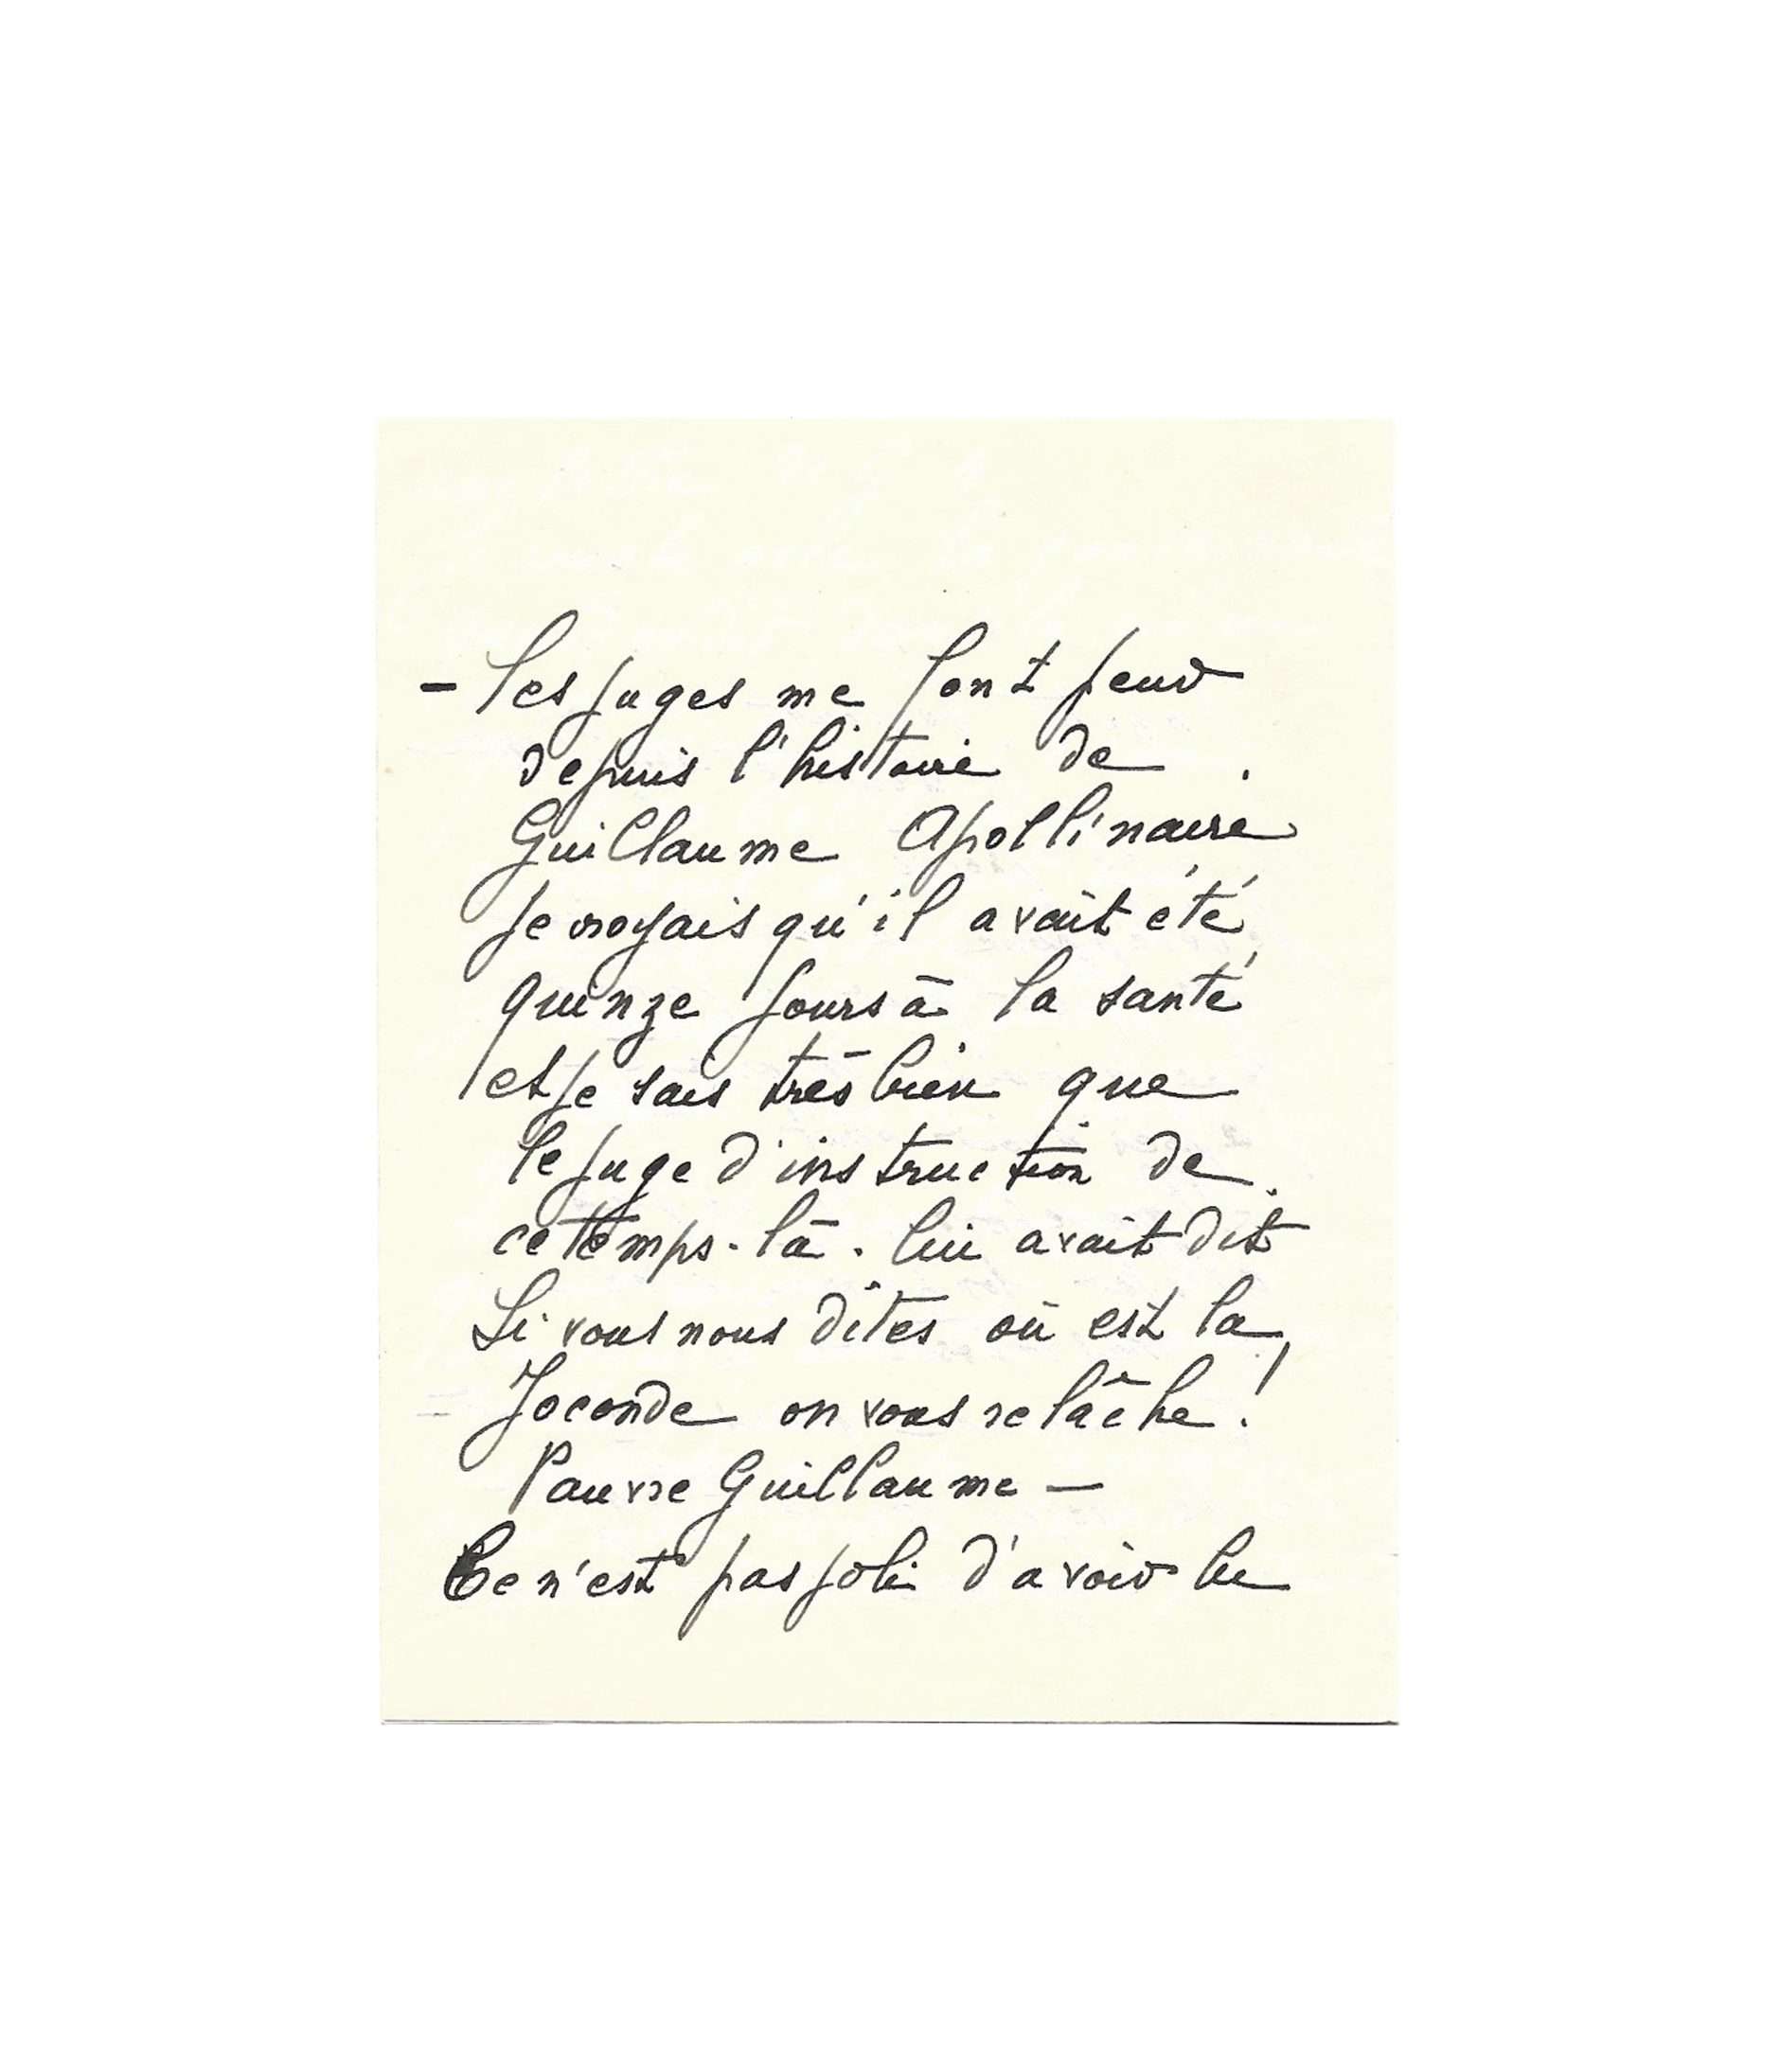 - les juges me font peur
depuis l'histoire de
Guillaume Apollinaire
Je croyais qu'il avait été
quinze jours à la santé
et je sais très bien que
le juge d'instruction de
ce temps-là. lui avait dit
Si vous nous dîtes où est la
Joconde on vous relâche !
Pauvre Guillaume —
Ce n'est pas joli d'avoir lu